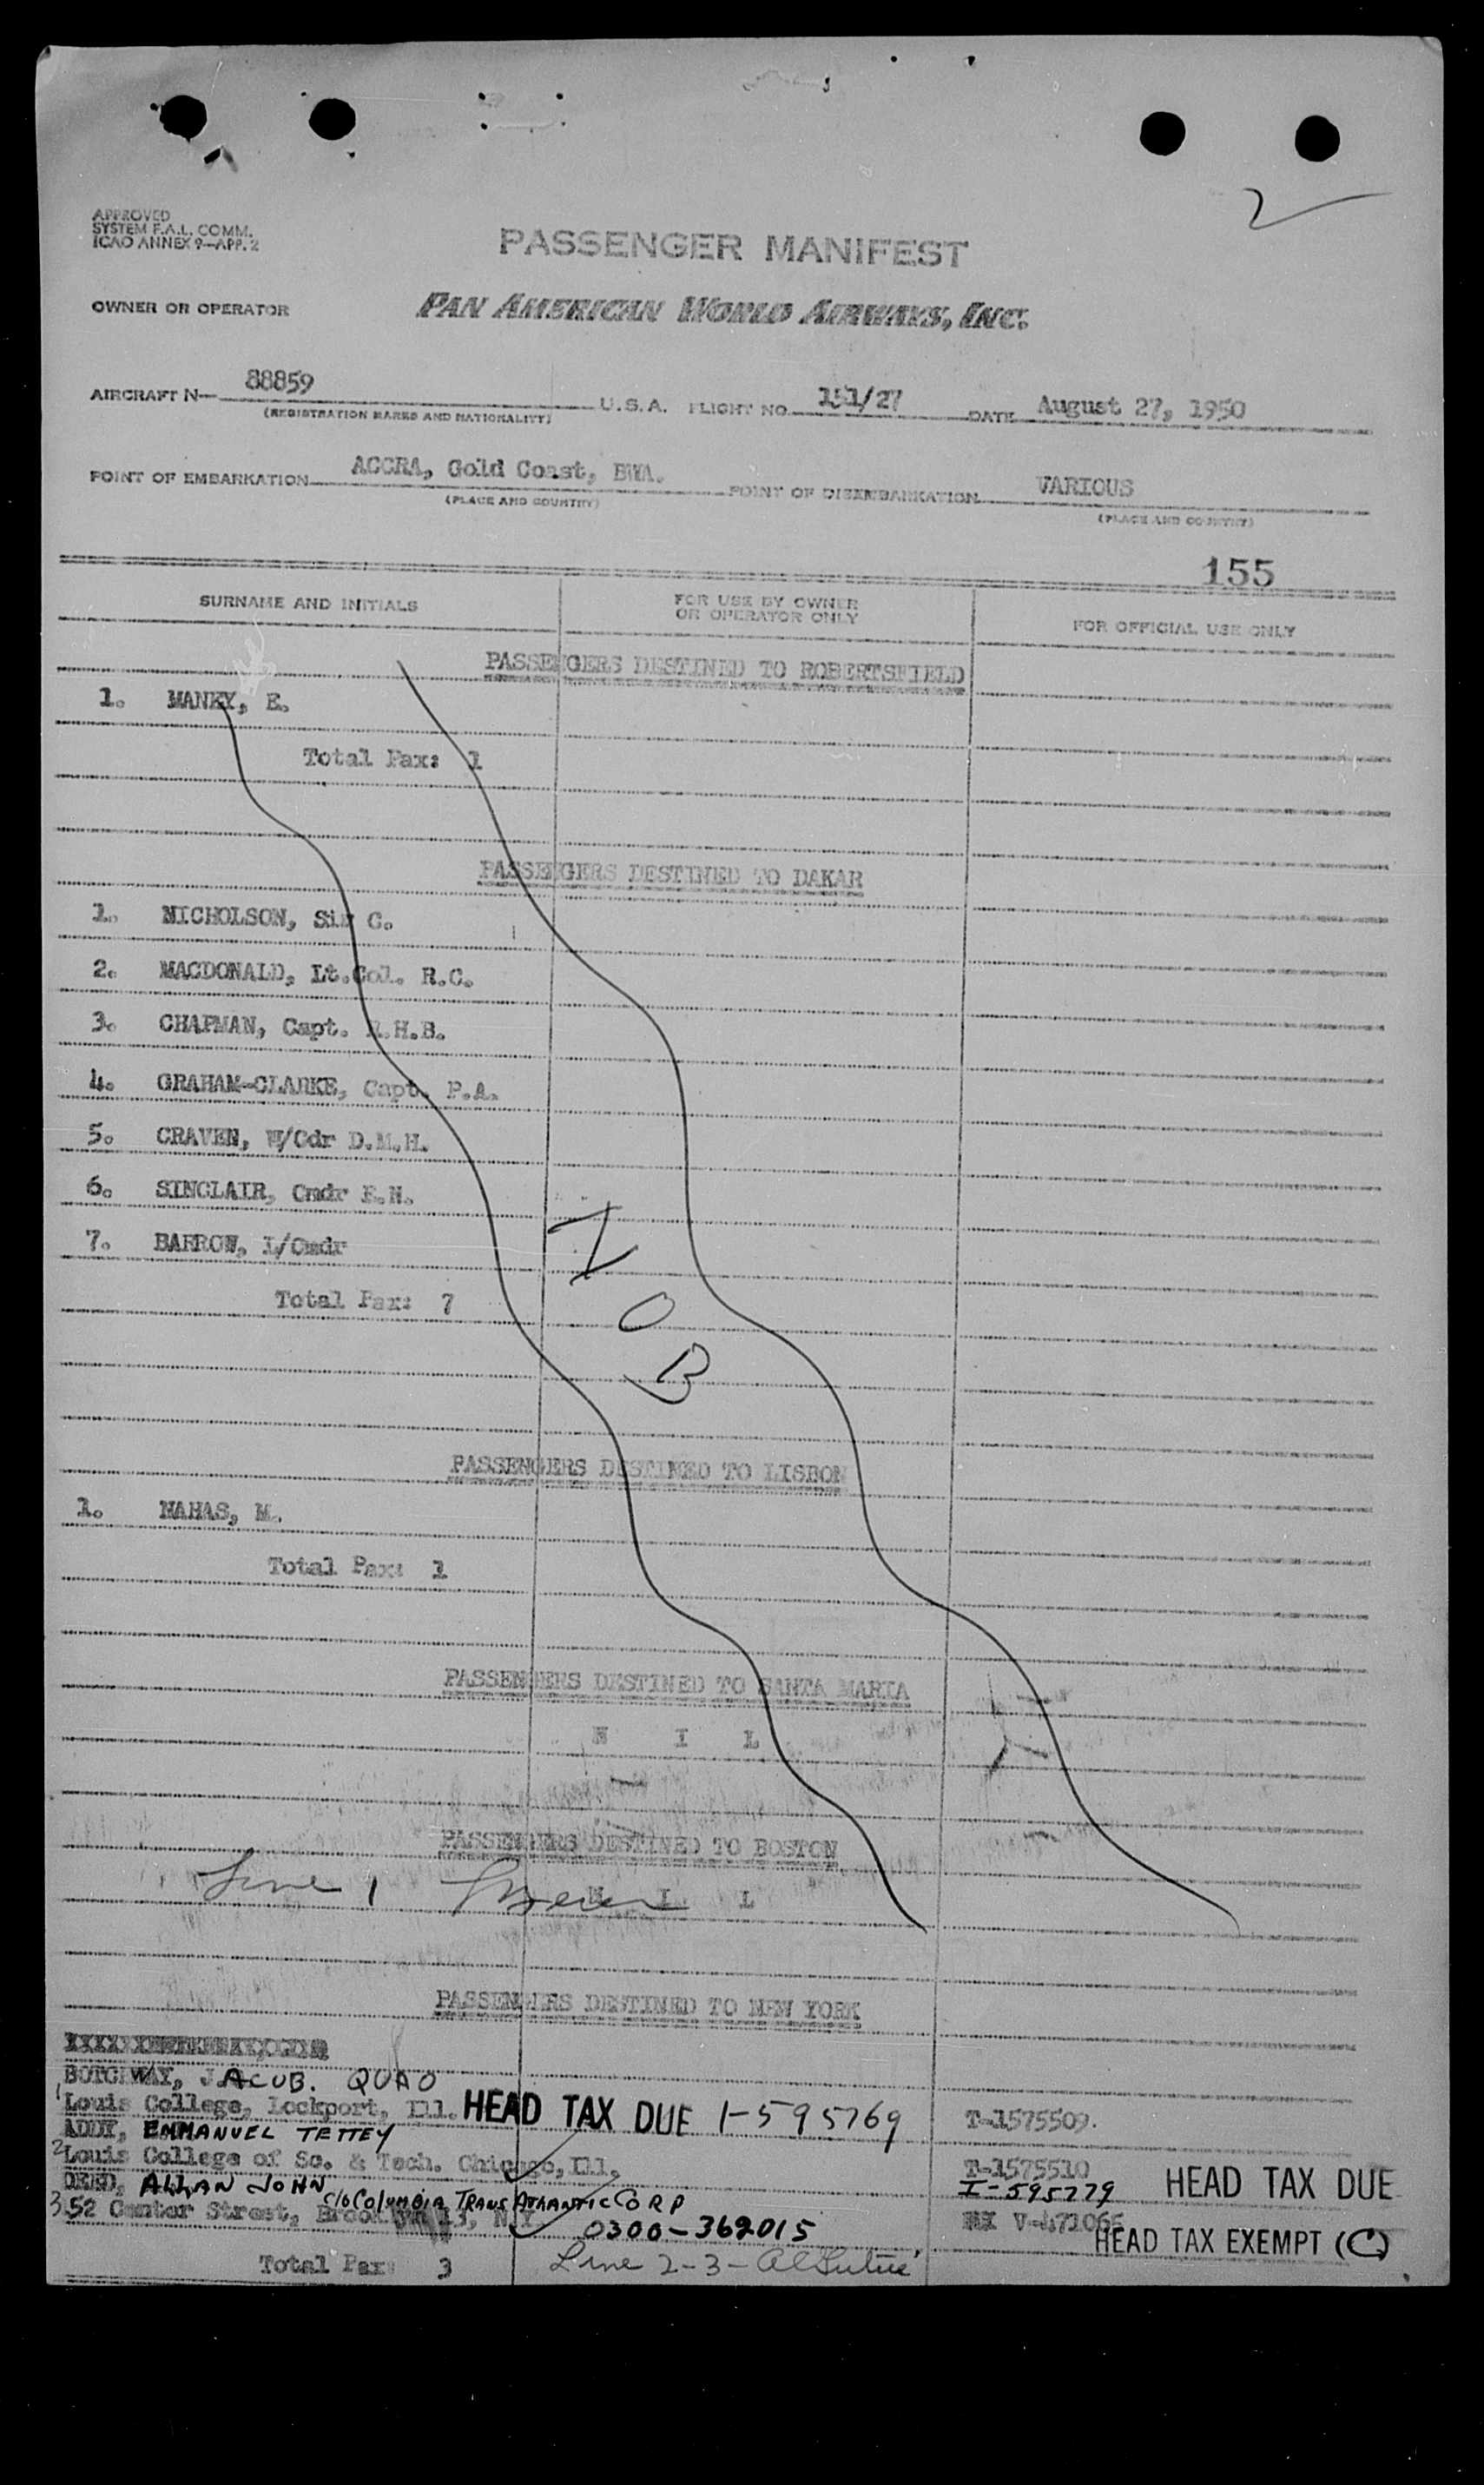 2
APPROVED
SYSTEM F.A.L. COMM.
ICAO ANNEX 9—APP. 2
PASSENGER MANIFEST
OWNER OR OPERATOR PAN AMERICAN WORLD AIRWAYS, INC.
AIRCRAFT N— 88859 U.S.A. FLIGHT NO. 151/27 DATE August 27, 1950
(REGISTRATION MARKS AND NATIONALITY)
POINT OF EMBARKATION ACCRA, Gold Coast, BWA. POINT OF DISEMBARKATION VARIOUS
(PLACE AND COUNTRY) (PLACE AND COUNTRY)
155
SURNAME AND INITIALS FOR USE BY OWNER OR OPERATOR ONLY FOR OFFICIAL USE ONLY
PASSENGERS DESTINED TO ROBERTSFIELD
1. MANKY, E.
Total Pax: 1
PASSENGERS DESTINED TO DAKAR
1. NICHOLSON, Sir C.
2. MACDONALD, Lt.Col. R.C.
3. CHAPMAN, Capt. R.H.B.
4. GRAHAM-CLARKE, Capt. P.A.
5. CRAVEN, W/Cdr D.M.H.
6. SINCLAIR, Cmdr E.N.
7. BARROW, L/Cmdr
Total Pax: 7
N
O
B
PASSENGERS DESTINED TO LISBON
1. NAHAS, M.
Total Pax: 1
PASSENGERS DESTINED TO SANTA MARIA
N I L
PASSENGERS DESTINED TO BOSTON
Line 1 N I L
PASSENGERS DESTINED TO NEW YORK
BOTCHWAY, JACUB. QUAO
1 Louis College, Lockport, Ill. HEAD TAX DUE 1-595769 T-1575509.
ADDY, EMMANUEL TETTEY
2 Louis College of Sc. & Tech. Chicago, Ill. T-1575510
ALLAN JOHN I-595779 HEAD TAX DUE
C/O COLUMBIA TRANS ATLANTIC CORP
3 52 Street, Brooklyn 13, N.Y. 0300-369015 V-471066
HEAD TAX EXEMPT (C)
Total Pax: 3 Line 2-3-